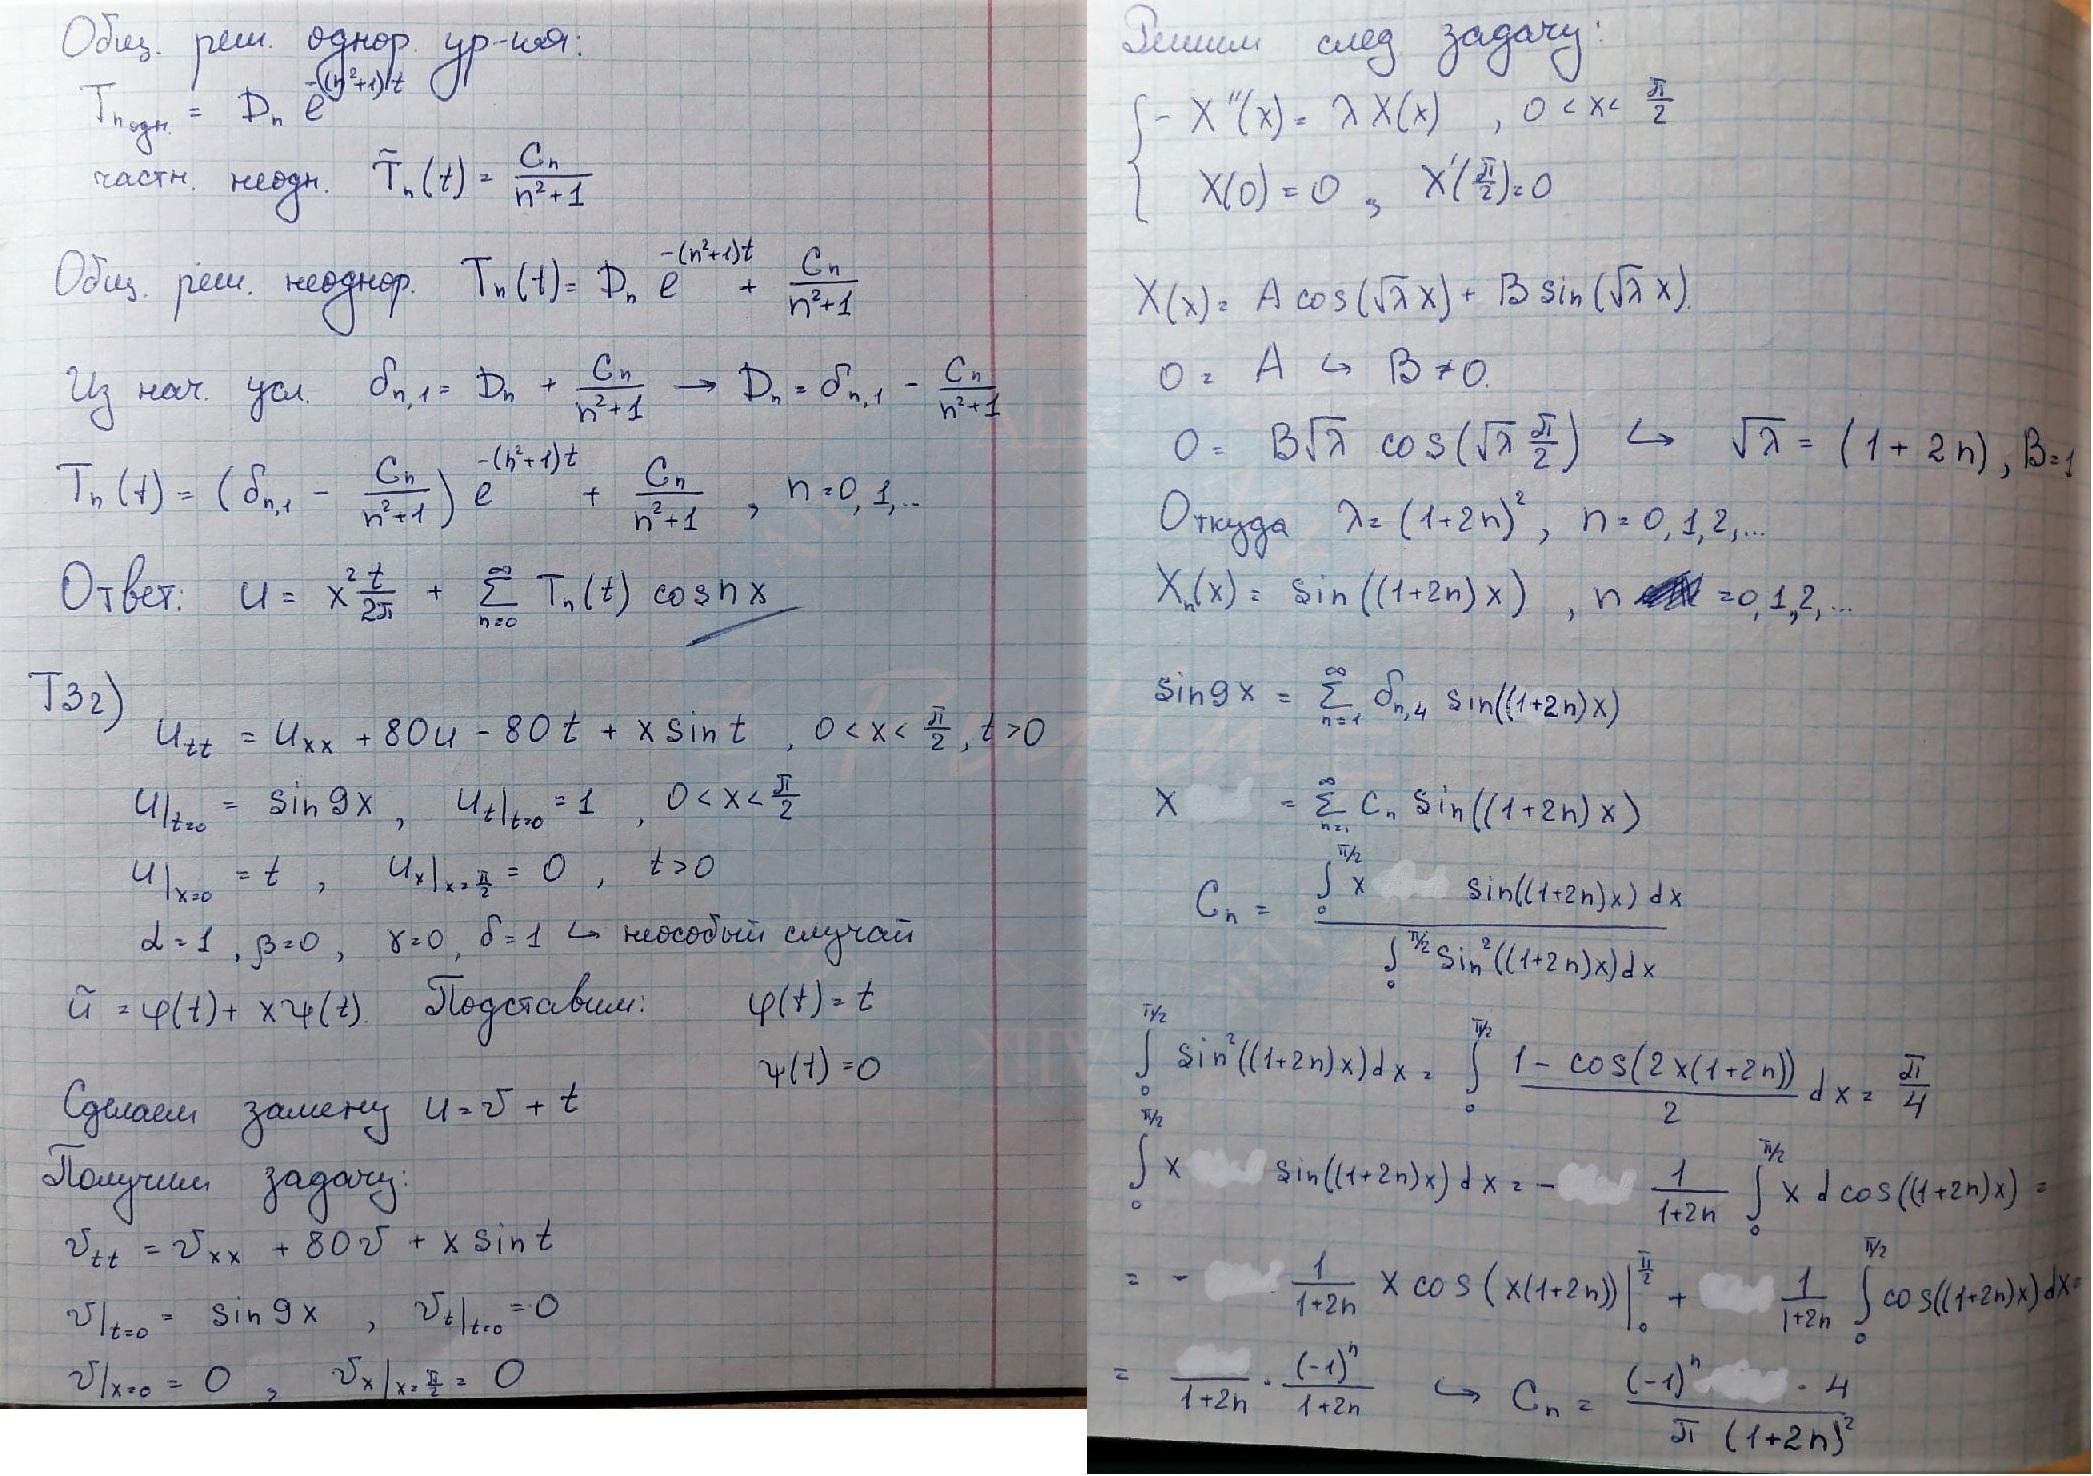 Общ. реш. однор. ур-ия:
Tₙ одн. = Dₙ e^{-(n²+1)t}
частн. неодн. T̃ₙ(t) = Cₙ/(n²+1)
Общ. реш. неоднор. Tₙ(t) = Dₙ e^{-(n²+1)t} + Cₙ/(n²+1)
Из нач. усл. δₙ,₁ = Dₙ + Cₙ/(n²+1) → Dₙ = δₙ,₁ - Cₙ/(n²+1)
Tₙ(t) = (δₙ,₁ - Cₙ/(n²+1)) e^{-(n²+1)t} + Cₙ/(n²+1) , n=0,1,..
Ответ: u = x² t/2π + ∑_{n=0}^{∞} Tₙ(t) cos nx
T3 г)
u_tt = u_xx + 80u - 80t + x sin t , 0<x<π/2, t>0
u|_{t=0} = sin 9x , u_t|_{t=0} = 1 , 0<x<π/2
u|_{x=0} = t , u_x|_{x=π/2} = 0 , t>0
α=1, β=0, γ=0, δ=1 ↪ неособый случай
ũ = φ(t) + xψ(t). Подставим: φ(t) = t
ψ(t) = 0
Сделаем замену u = v + t
Получим задачу:
v_tt = v_xx + 80v + x sin t
v|_{t=0} = sin 9x , v_t|_{t=0} = 0
v|_{x=0} = 0 , v_x|_{x=π/2} = 0
Решим след задачу:
{ -X''(x) = λX(x) , 0<x<π/2
X(0) = 0 , X'(π/2) = 0
X(x) = A cos(√λ x) + B sin(√λ x).
0 = A ↪ B≠0.
0 = B√λ cos(√λ π/2) ↪ √λ = (1+2n), B=1
Откуда λ = (1+2n)², n=0,1,2,...
Xₙ(x) = sin((1+2n)x) , n =0,1,2,...
sin 9x = ∑_{n=1}^{∞} δₙ,₄ sin((1+2n)x)
x = ∑_{n=1}^{∞} Cₙ sin((1+2n)x)
Cₙ = ∫₀^{π/2} x sin((1+2n)x)dx / ∫₀^{π/2} sin²((1+2n)x)dx
∫₀^{π/2} sin²((1+2n)x)dx = ∫₀^{π/2} (1 - cos(2x(1+2n)))/2 dx = π/4
∫₀^{π/2} x sin((1+2n)x)dx = - 1/(1+2n) ∫₀^{π/2} x d cos((1+2n)x) =
= - 1/(1+2n) x cos(x(1+2n))|₀^{π/2} + 1/(1+2n) ∫₀^{π/2} cos((1+2n)x)dx =
= /(1+2n) · (-1)ⁿ/(1+2n) ↪ Cₙ = (-1)ⁿ · 4 / π(1+2n)²